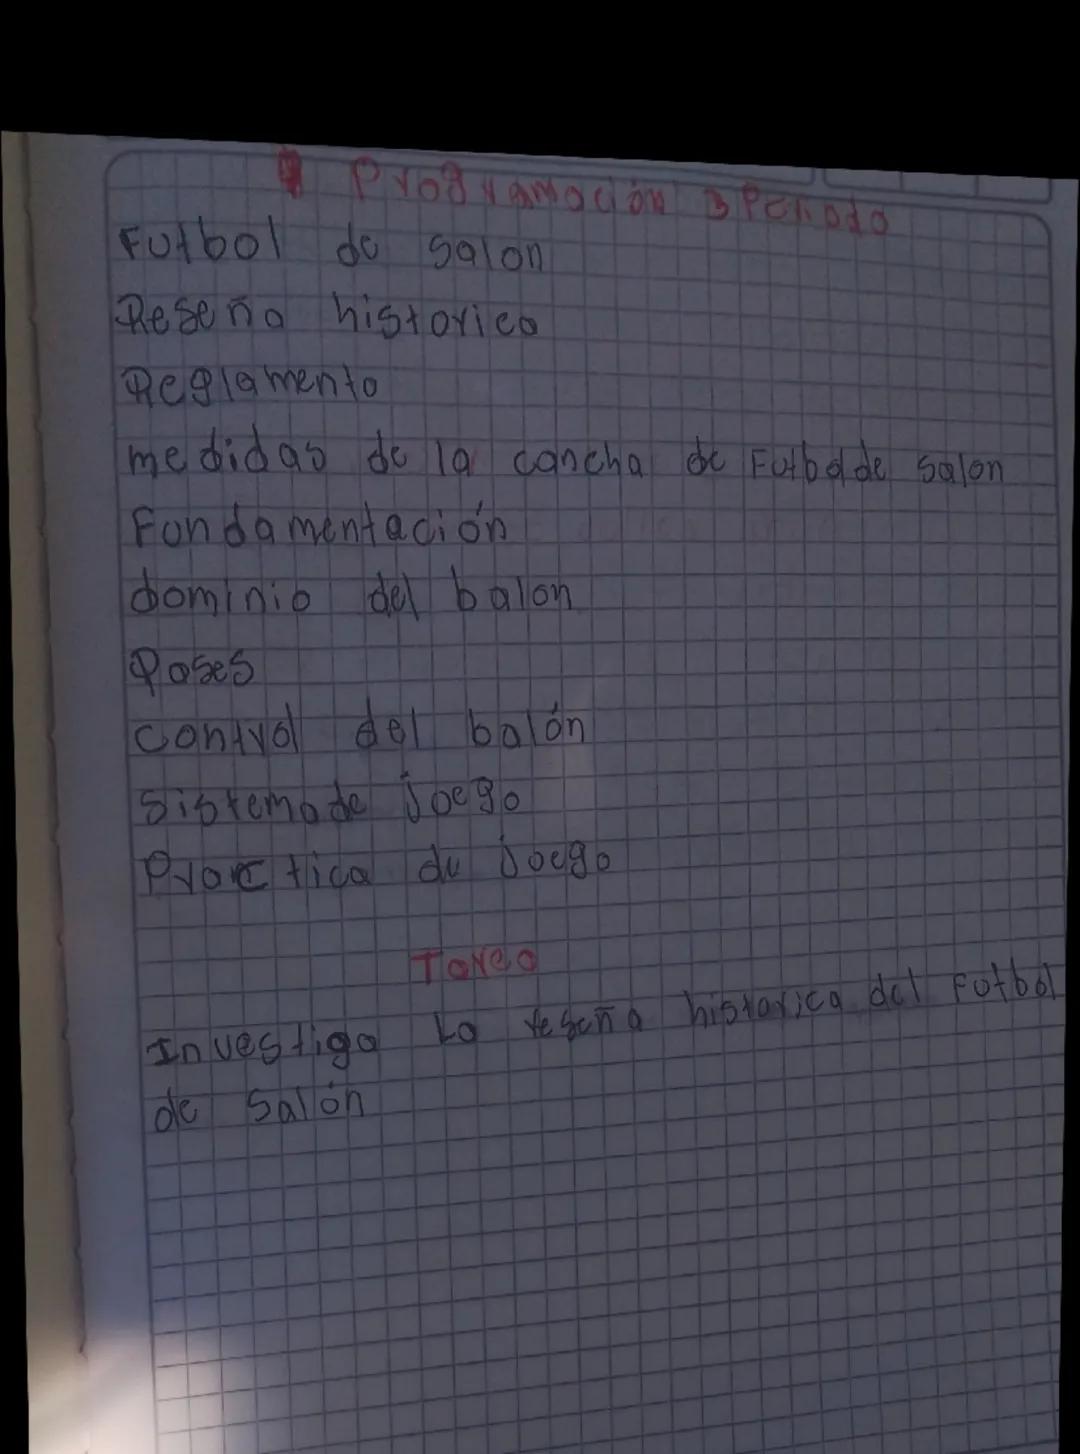 Programación 3 Periodo
Futbol de salon
Reseña historica
Reglamento
medidas de la cancha de Futbol de salon
Fundamentación
dominio del balon
Pases
control del balón
Sistema de juego
Practica de juego
Tarea
Investiga La reseña historica del Futbol
de Salón